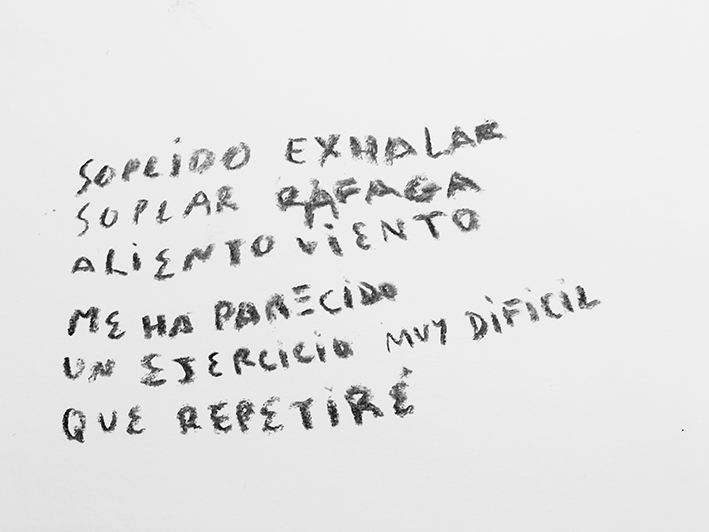 SOPLIDO EXHALAR
SUPLAR RAFAGA
ALIENTO VIENTO
ME HA PARECIDO
UN EJERCICIO MUY DIFICIL
QUE REPETIRÉ